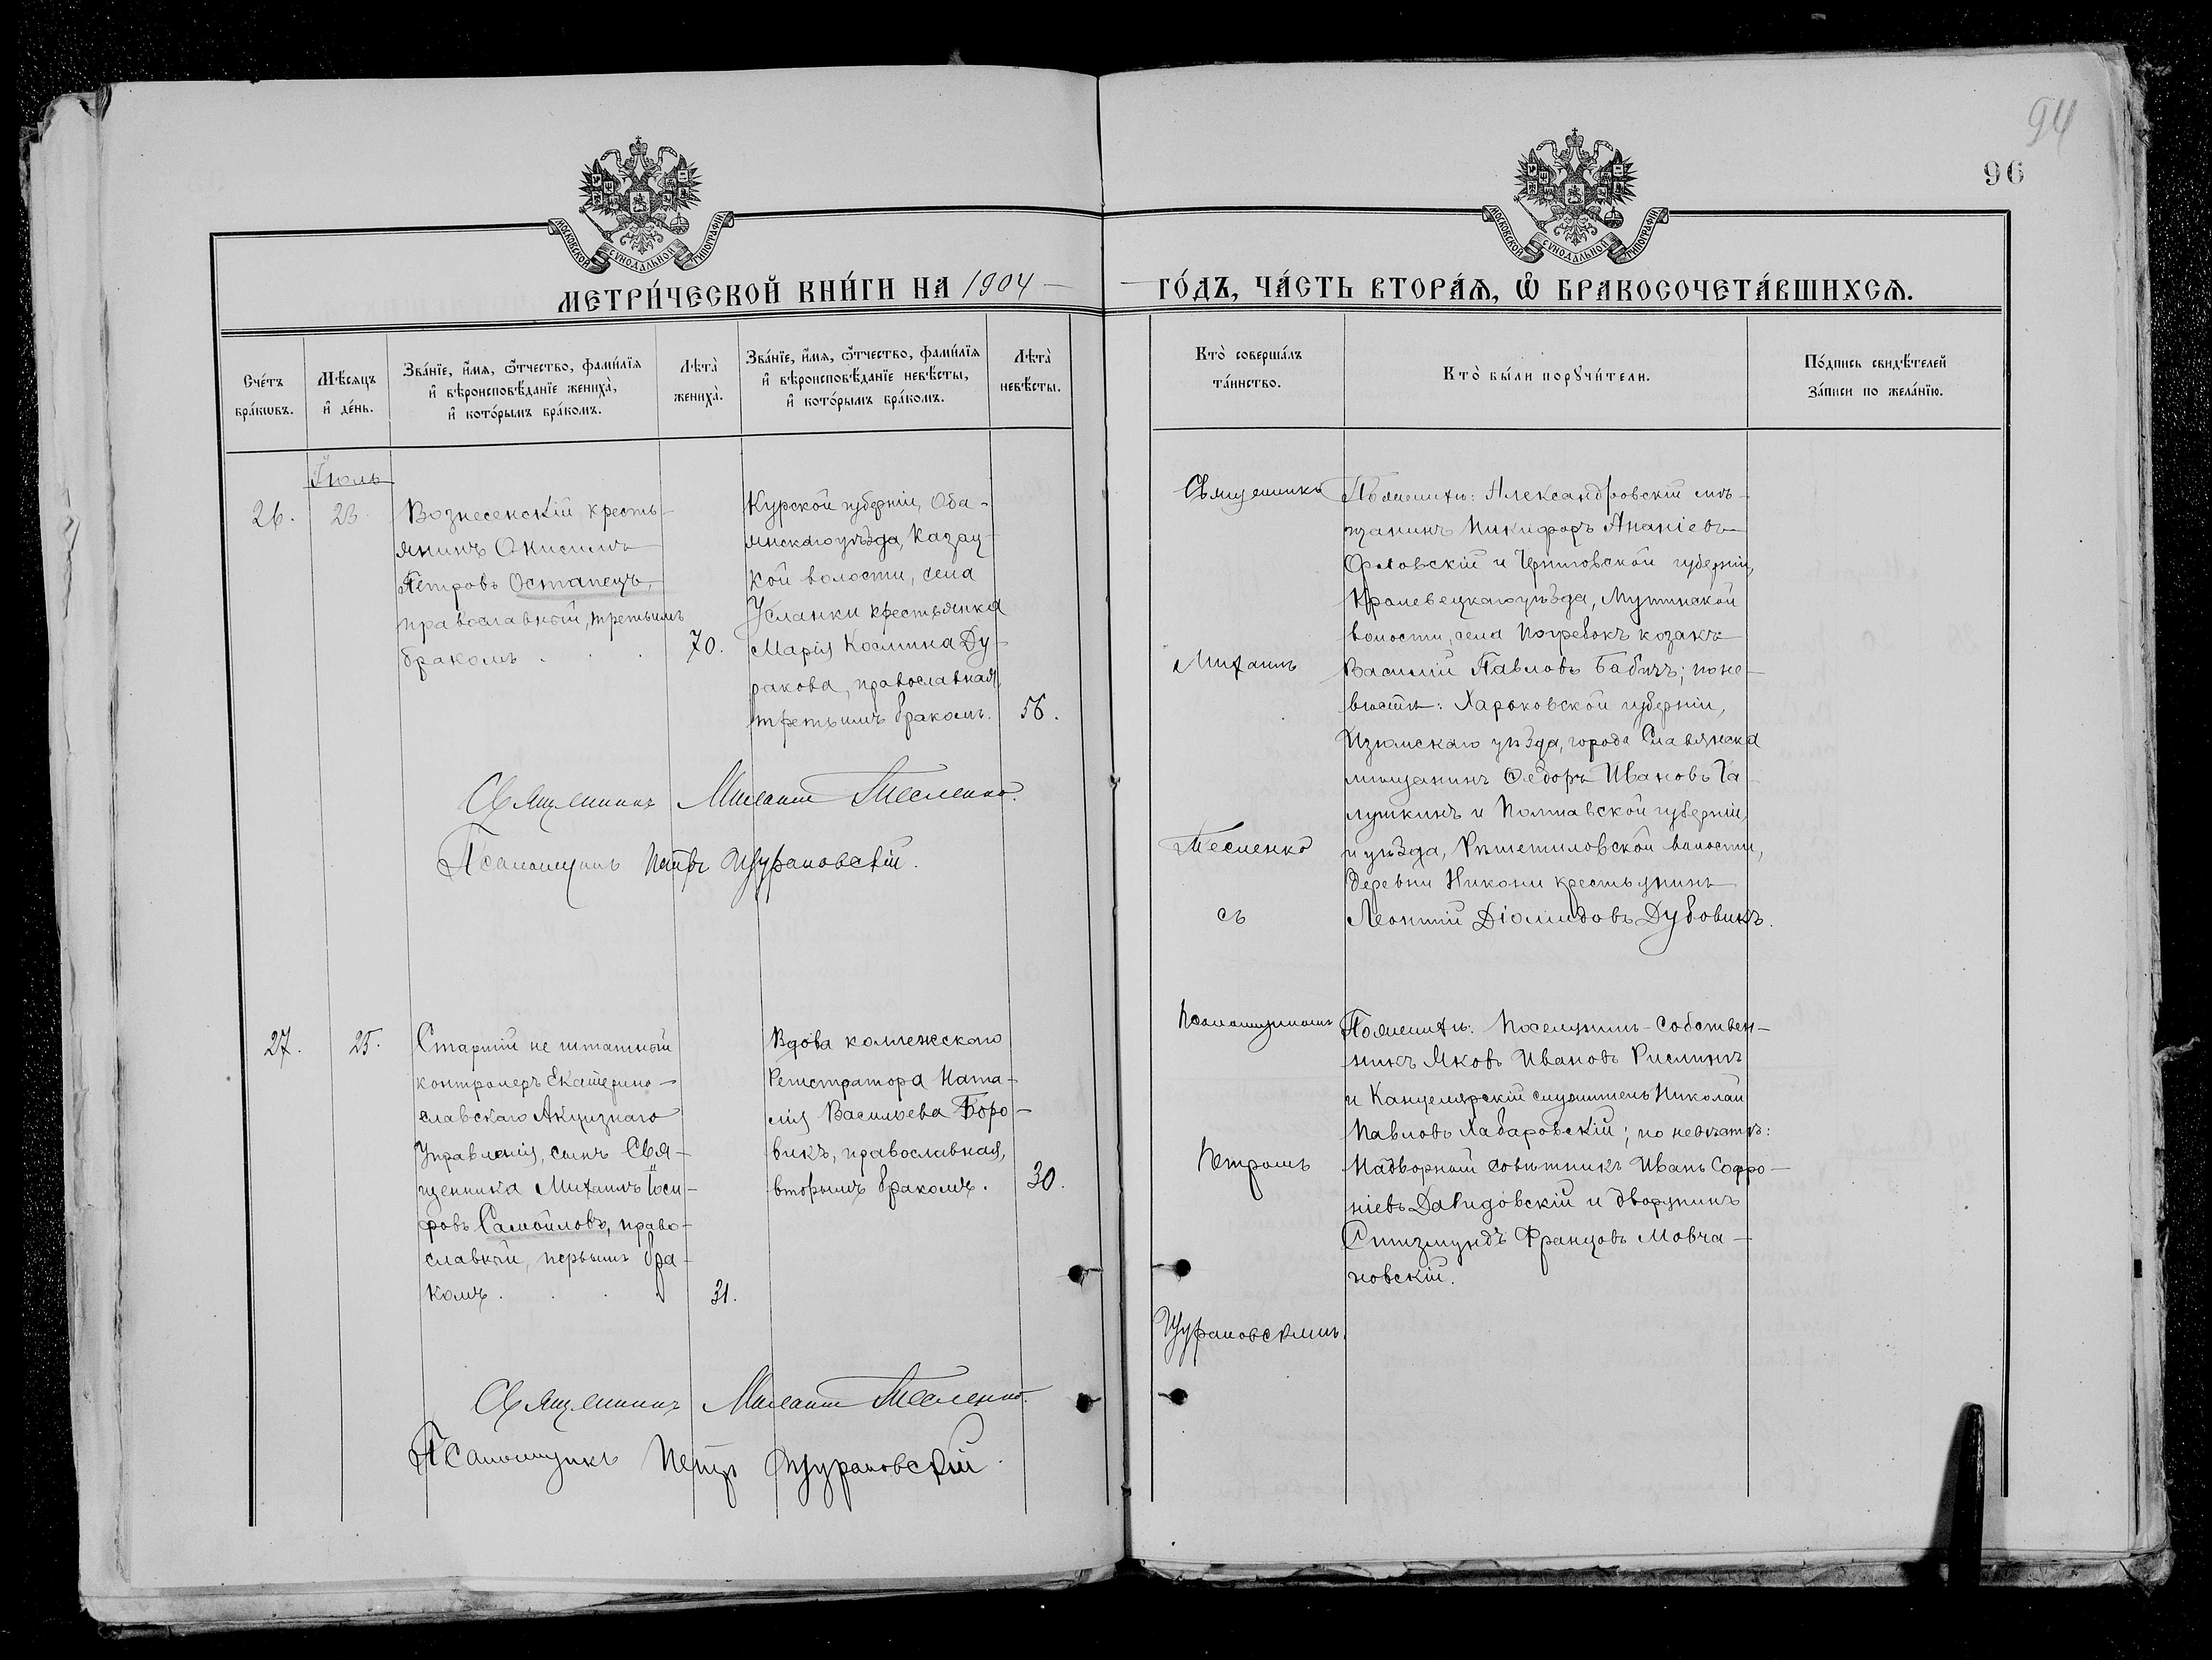 94
96
МОСКОВСКОЙ СУНОДАЛЬНОЙ ТИПОГРАФІИ
МОСКОВСКОЙ СУНОДАЛЬНОЙ ТИПОГРАФІИ
МЕТРИ́ЧЕСКОЙ КНИ́ГИ НА 1904 —
— ГО́ДЪ, ЧА́СТЬ ВТОРА́Ѧ, Ѽ БРАКОСОЧЕТА́ВШИХСѦ.
Сче́тъ
бра́кѡвъ.
Мѣ́сяцъ
и҆ де́нь.
Зва́нїе, и҆́мя, ѻ҆́тчество, фами́лїя
и҆ вѣроисповѣ́данїе жениха̀,
и҆ кото́рымъ бра́комъ.
Лѣ́та̀
жениха̀.
Зва́нїе, и҆́мя, ѻ҆́тчество, фами́лїя
и҆ вѣроисповѣ́данїе невѣ́сты,
и҆ кото́рымъ бра́комъ.
Лѣ́та̀
невѣ́сты.
Кто̀ соверша́лъ
та́инство.
Кто̀ бы́ли порꙋчи́тели.
По́дпись свидѣ́телей
за́писи по жела́нїю.
Іюль
26.
23.
Вознесенскій кресть-
янинъ Онисимъ
Петровъ Остапецъ,
православный, третьимъ
бракомъ . . .
70.
Курской губерніи, Обо-
янскаго уѣзда, Казац-
кой волости, села
Усланки крестьянка
Марія Космина Ду-
ракова, православная,
третьимъ бракомъ.
56.
Священникъ Михаилъ Тесленко.
Псаломщикъ Петръ Щурановскій.
Священникъ
Михаилъ
Тесленко
съ
Псаломщикомъ
Петромъ
Щурановскимъ.
По женихѣ: Александровскій мѣ-
щанинъ Никифоръ Ананіевъ
Орловскій и Черниговской губерніи,
Кролевецкаго уѣзда, Мутинской
волости, села Погребокъ козакъ
Василій Павловъ Бабичъ; по не-
вѣстѣ: Харьковской губерніи,
Изюмскаго уѣзда, города Славянска
мѣщанинъ Ѳедоръ Ивановъ Га-
лушкинъ и Полтавской губерніи
и уѣзда, Рѣшетиловской волости,
деревни Никони крестьянинъ
Леонтій Діомидовъ Дубовикъ.
27.
25.
Старшій не штатный
контролеръ Екатерино-
славскаго Акцизнаго
Управленія, сынъ Свя-
щенника Михаилъ Іоси-
фовъ Самойловъ, право-
славный, первымъ бра-
комъ . . . .
31.
Вдова коллежскаго
Регистратора Ната-
лія Васильева Боро-
викъ, православная,
вторымъ бракомъ.
30.
Священникъ Михаилъ Тесленко.
Псаломщикъ Петръ Щурановскій.
По женихѣ: Поселянинъ-собствен-
никъ Яковъ Ивановъ
и Канцелярскій служитель Николай
Павловъ Хабаровскій; по невѣстѣ:
Надворный совѣтникъ Иванъ Софро-
ніевъ Давидовскій и дворянинъ
Сигизмундъ Францовъ Мовча-
новскій.